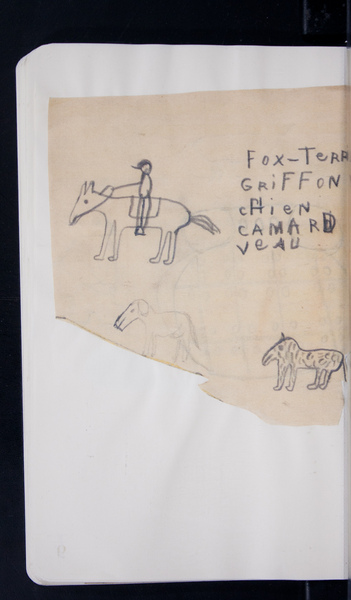 FOX-TERR
GRIFFON
CHIEN
CAMARD
VEAU